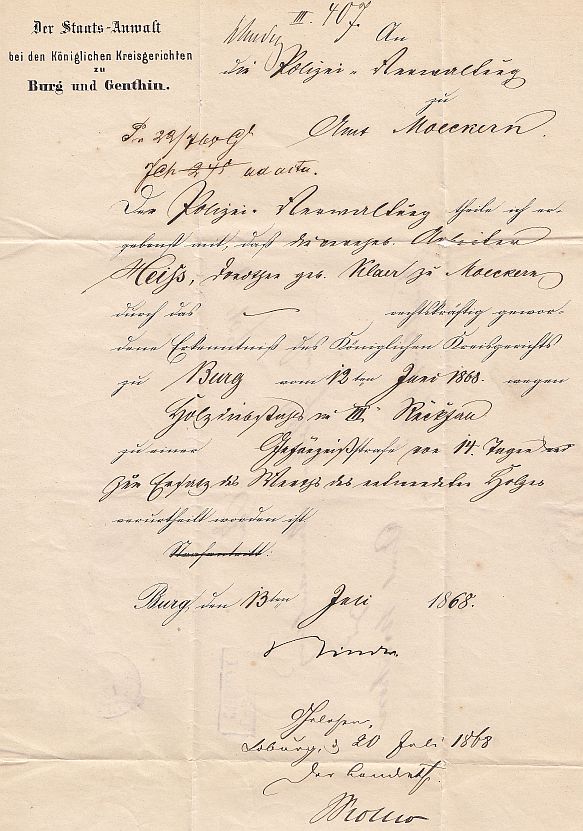 Der Staats-Anwalt
bei den Königlichen Kreisgerichten
zu
Burg und Genthin.
III. 407.
An
die Polizei-Verwaltung
zu
Amt Moeckern.
ad acta.
Der Polizei-Verwaltung theile ich er-
gebenst mit, daß die verehel. Arbeiter
Heiß, Dorothee geb. Klaer zu Moeckern
durch das rechtskräftig gewor-
dene Erkenntniß des Königlichen Kreisgerichts
zu Burg vom 12ten Juni 1868. wegen
Holzdiebstahls im III. Rückfall
zu einer Gefängnißstrafe von 14. Tagen und
zum Ersatz des Werths des entwendeten Holzes
verurtheilt worden ist.
Burg, den 13ten Juli 1868.
Gelesen,
Loburg, d 20 Juli 1868
Der Landrath.